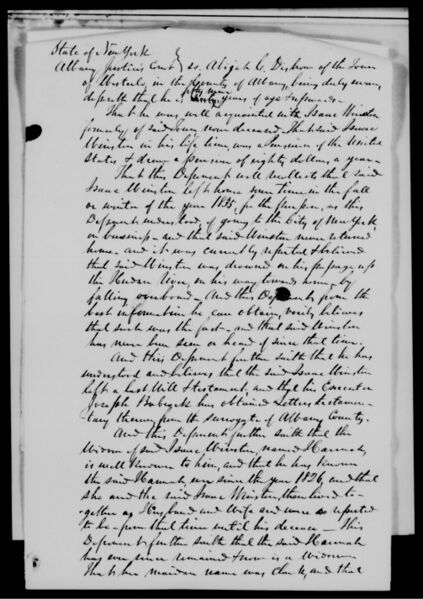 State of New York
Albany Justices Court } ss. Abijah C. Disbrow of the Town
of Westerlo, in the County of Albany, being duly sworn,
deposeth that he is fifty nine years of age & upwards.
That he was well acquainted with Isaac Winston
formerly of said now deceased. That said Isaac
Winston in his life time was a Pensioner of the United
States & drew a pension of eighty dollars a year.
That this Deponent well recollects that said
Isaac Winston left home some time in the fall
or winter of the year 1835, for the purpose, as this
Deponent understood, of going to the City of New York,
on business – and that said Winston never returned
home – and it was currently reported & believed
that said Winston was drowned on his passage up
the Hudson River, on his way towards home – by
falling overboard – And this Deponent, from the
best information he can obtain, verily believes
that such was the fact – and that said Winston
has never been seen or heard of since that time.
And this Deponent further saith that he has
understood and believes that the said Isaac Winston
left a last Will & testament, and that his Executor
Joseph has obtained Letters testamen-
tary thereon from the surrogate of Albany County.
And this Deponent further saith that the
Widow of said Isaac Winston, named Hannah,
is well known to him, and that he has known
the said Hannah ever since the year 1826, and that
she and the said Isaac Winston, then lived to-
gether as Husband and Wife and were so reputed
to be from that time until his decease – This
Deponent further saith that the said Hannah
has ever since remained & now is a Widow
That her maiden name was Clark, and that